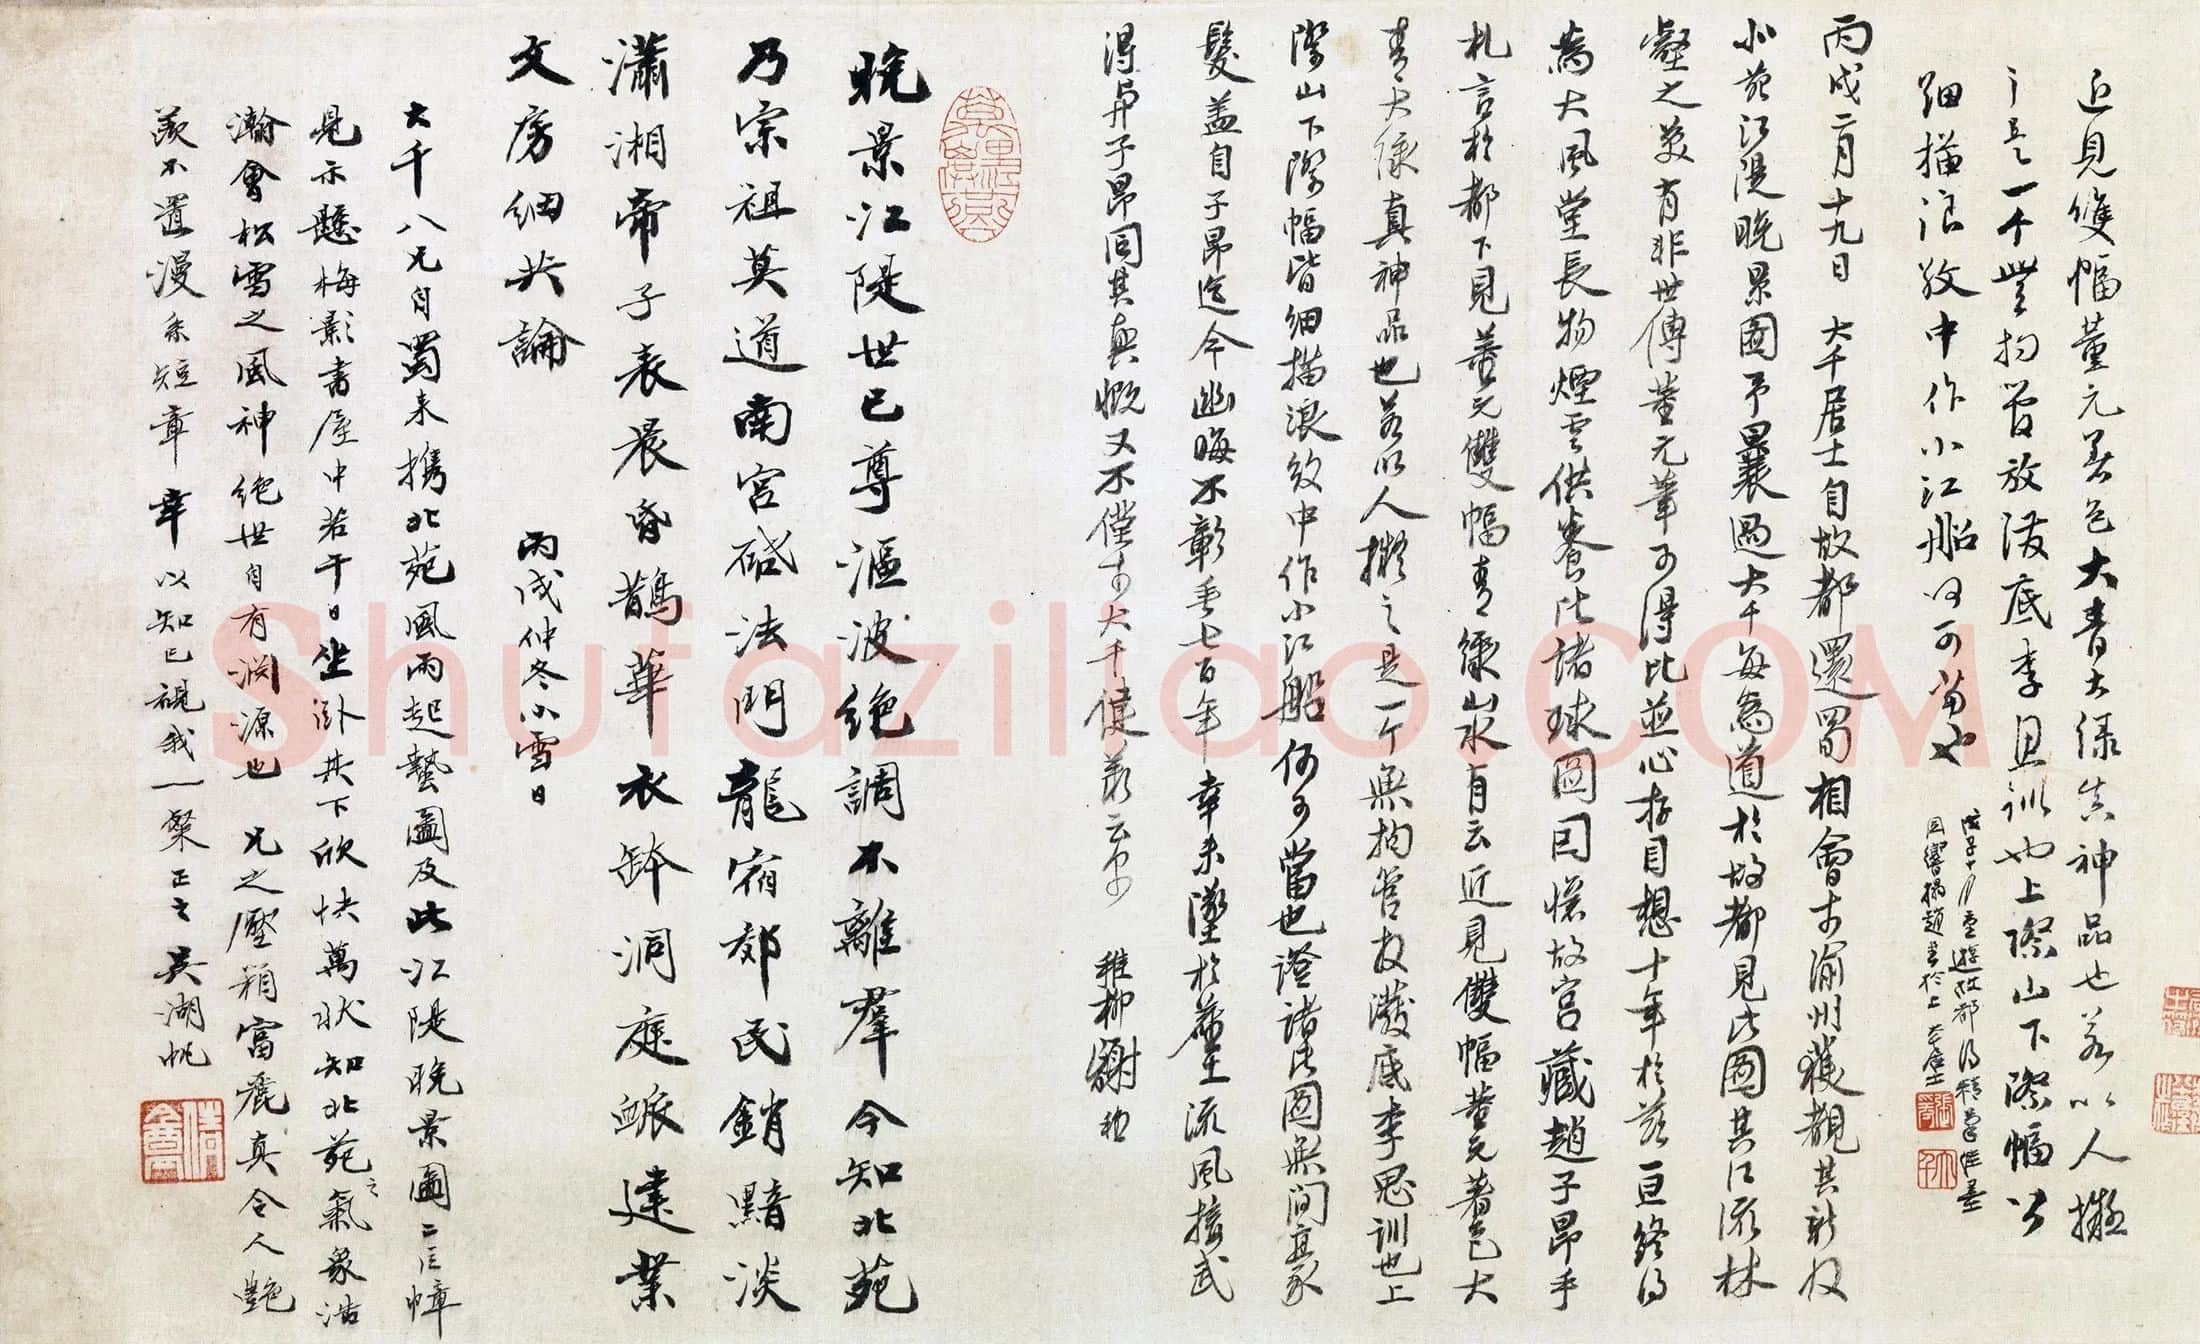 近見雙幅董元著色大青大绿真神品也若以人擬
之是一个無拘管放潑底李思訓也上際山下際幅皆
細描浪紋中作小江船何可當也
戊子十月重遊故都得精筆佳墨
因響搨趙書於上 大千居士
丙戌二月十九日 大千居士自故都還蜀相會于渝州獲觀其新收
北苑江隄晚景圖予曩過大千每為道於故都見此圖其江流林
壑之美有非世傳董元筆可得比並心存目想十年於茲亘終得
為大風堂長物煙雲供養比諸球圖因憶故宮藏趙子昂手
札言於都下見董元雙幅青綠山水有云近見雙幅董元著色大
青大綠真神品也若以人擬之是一个無拘管放潑底李思訓也上
際山下際幅皆細描浪紋中作小江船何可當也證諸此圖無間豪
髮蓋自子昂迄今幽晦不彰垂七百年幸未墜於塵土流風接武
得與子昂同其興慨又不僅于大千健羡云爾 稚柳謝稚
晚景江隄世已尊漚波絶調不離群今知北苑
乃宗祖莫道南宮砥法門龍宿郊民銷黯淡
瀟湘帝子表晨昏鵲華衣缽洞庭派建業
文房細共論
丙戌仲冬小雪日
大千八兄自蜀来携北苑風雨起蟄圖及此江隄晚景圖二巨幛
見示懸梅影書屋中若干日坐卧其下欣快萬状知北苑之氣象浩
瀚會松雪之風神絶世自有渊源也 兄之壓箱富麗真令人艷
羨不置漫系短章 幸以知己視我一粲正之 吴湖帆
Shufaziliao.COM